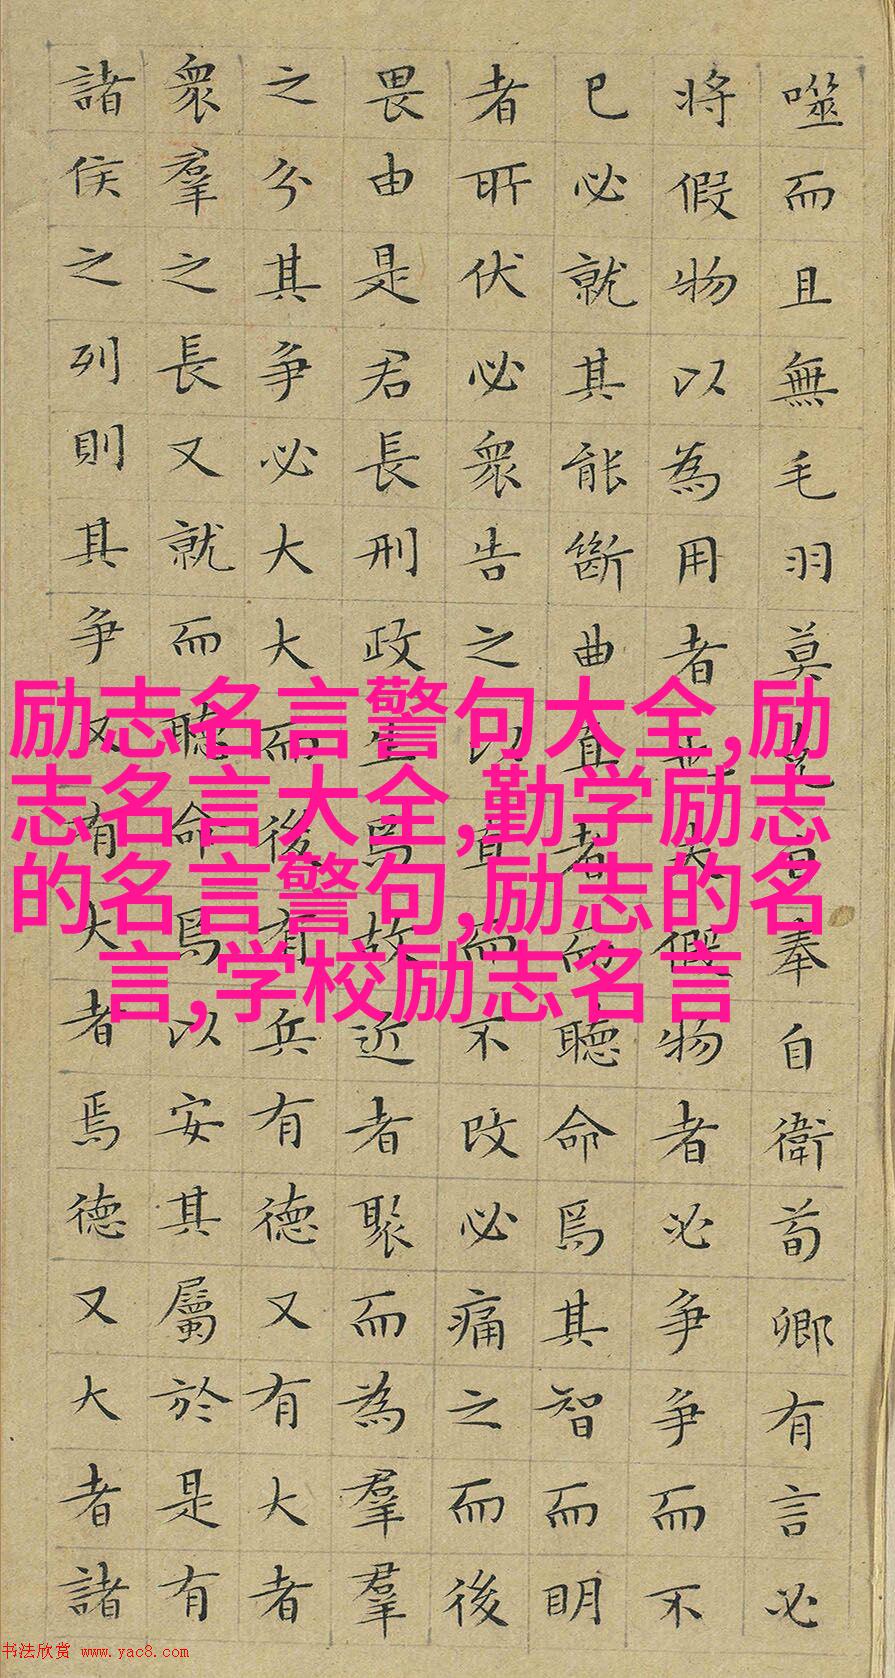 噬而且無毛羽莫克自奉自衛荀卿有言必
將假物以為用者也夫假物者必爭爭而不
已必就其能斷曲直者而聽命焉其智而明
者所伏必衆告之以直而不改必痛之而後
畏由是君長刑政生焉故近者聚而為羣羣
之分其爭必大大而後有兵有德又有大者
衆羣之長又就而聽命焉以安其屬於是有
諸侯之列則其爭又有大者焉德又大者諸
励志名言警句大全,励
志名言大全,勤学励志
的名言警句,励志的名
言,学校励志名言
书法欣赏 www.yac8.com